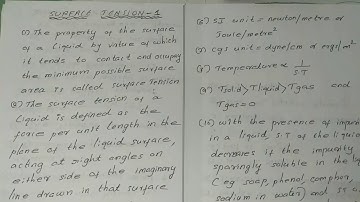 SURFACE TENSION-1
(1) The property of the surface
of a liquid by value of which
it tends to contact and occupy
the minimum possible surface
area is called surface Tension
(2) The surface tension of a
Liquid is defined as the
force per unit length in the
plane of the liquid surface,
acting at right angles on
either side of the imaginary
line drawn in that surface
SI unit = newton/metre or
Joule/metre²
cgs unit = dyne/cm or ergs/m²
Temperature ∝ 1/S.T
Tsolid > Tliquid > Tgas and
Tgas = 0
(10) with the presence of
in a liquid, S.T of the liquid
decreases if the impurity
sparingly soluble in the
(eg soap, phenol, camphor,
sodium in water) and